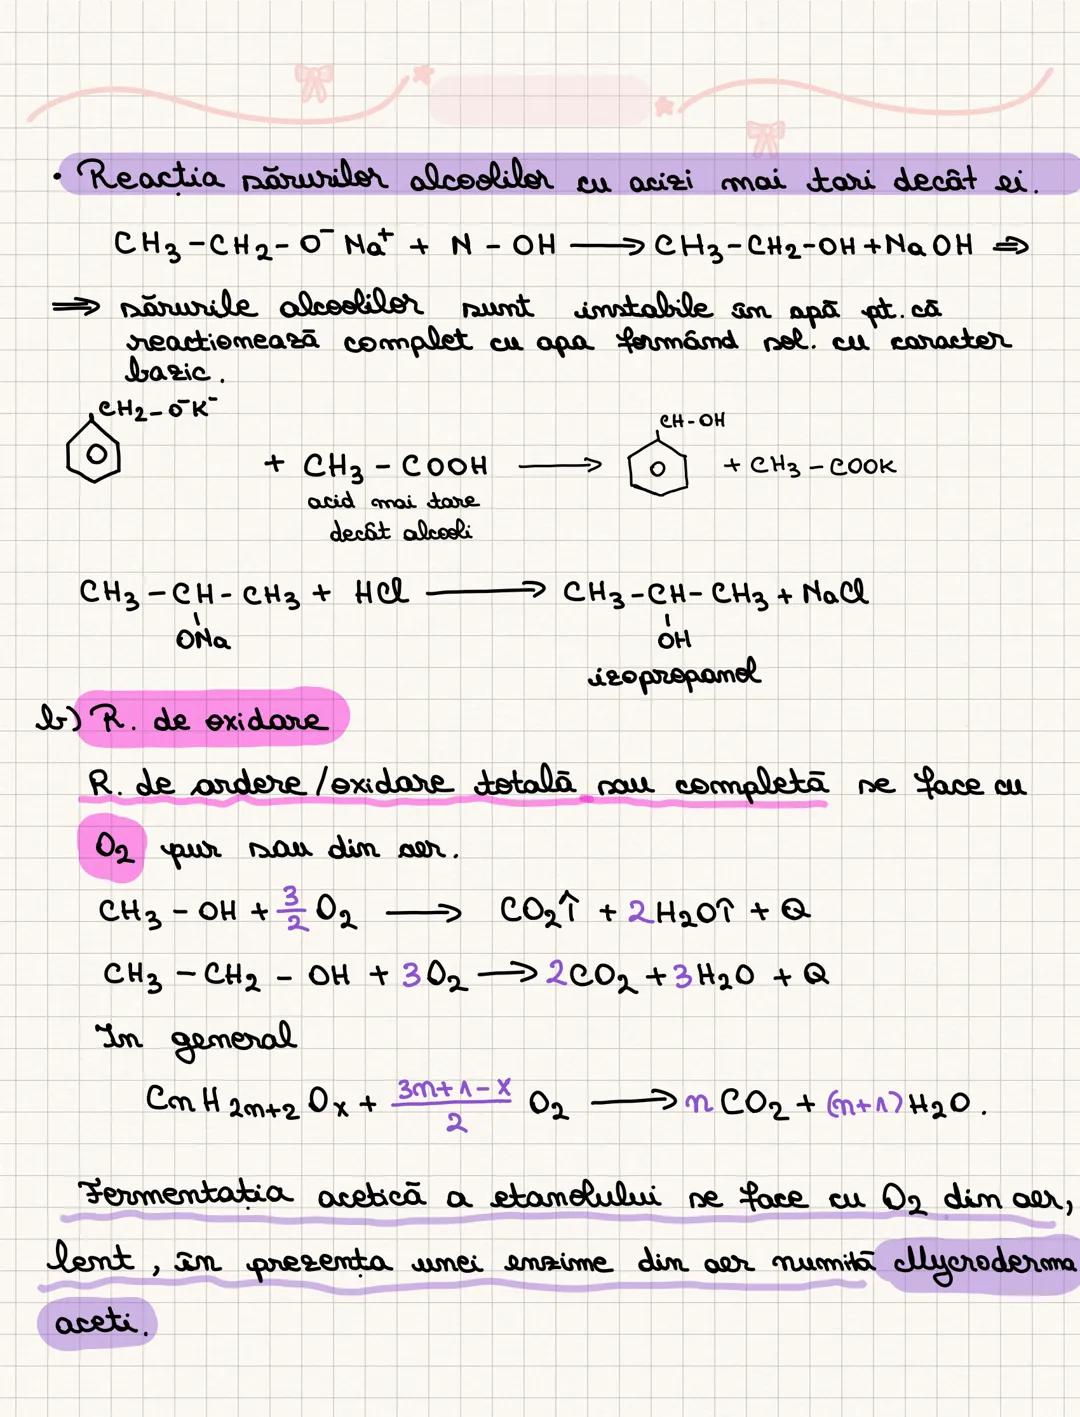 • Reacția sărurilor alcoolilor cu acizi mai tari decât ei.
CH3 - CH2 - O⁻ Na⁺ + N - OH ⟶ CH3 - CH2 - OH + NaOH ⇒
⇒ sărurile alcoolilor sunt instabile în apă pt. că
reacționează complet cu apa formând sol. cu caracter
bazic.
CH2 - O⁻K⁻
CH - OH
+ CH3 - COOH ⟶ + CH3 - COOK
acid mai tare
decât alcooli
CH3 - CH - CH3 + HCl ⟶ CH3 - CH - CH3 + NaCl
ONa OH
izopropanol
b) R. de oxidare
R. de ardere / oxidare totală sau completă se face cu
O2 pur sau din aer.
CH3 - OH + 3/2 O2 ⟶ CO2↑ + 2H2O↑ + Q
CH3 - CH2 - OH + 3O2 ⟶ 2CO2 + 3H2O + Q
În general
CnH2n+2Ox + (3n+1-x)/2 O2 ⟶ nCO2 + (n+1)H2O.
Fermentația acetică a etanolului se face cu O2 din aer,
lent, în prezența unei enzime din aer numită Mycroderma
aceti.